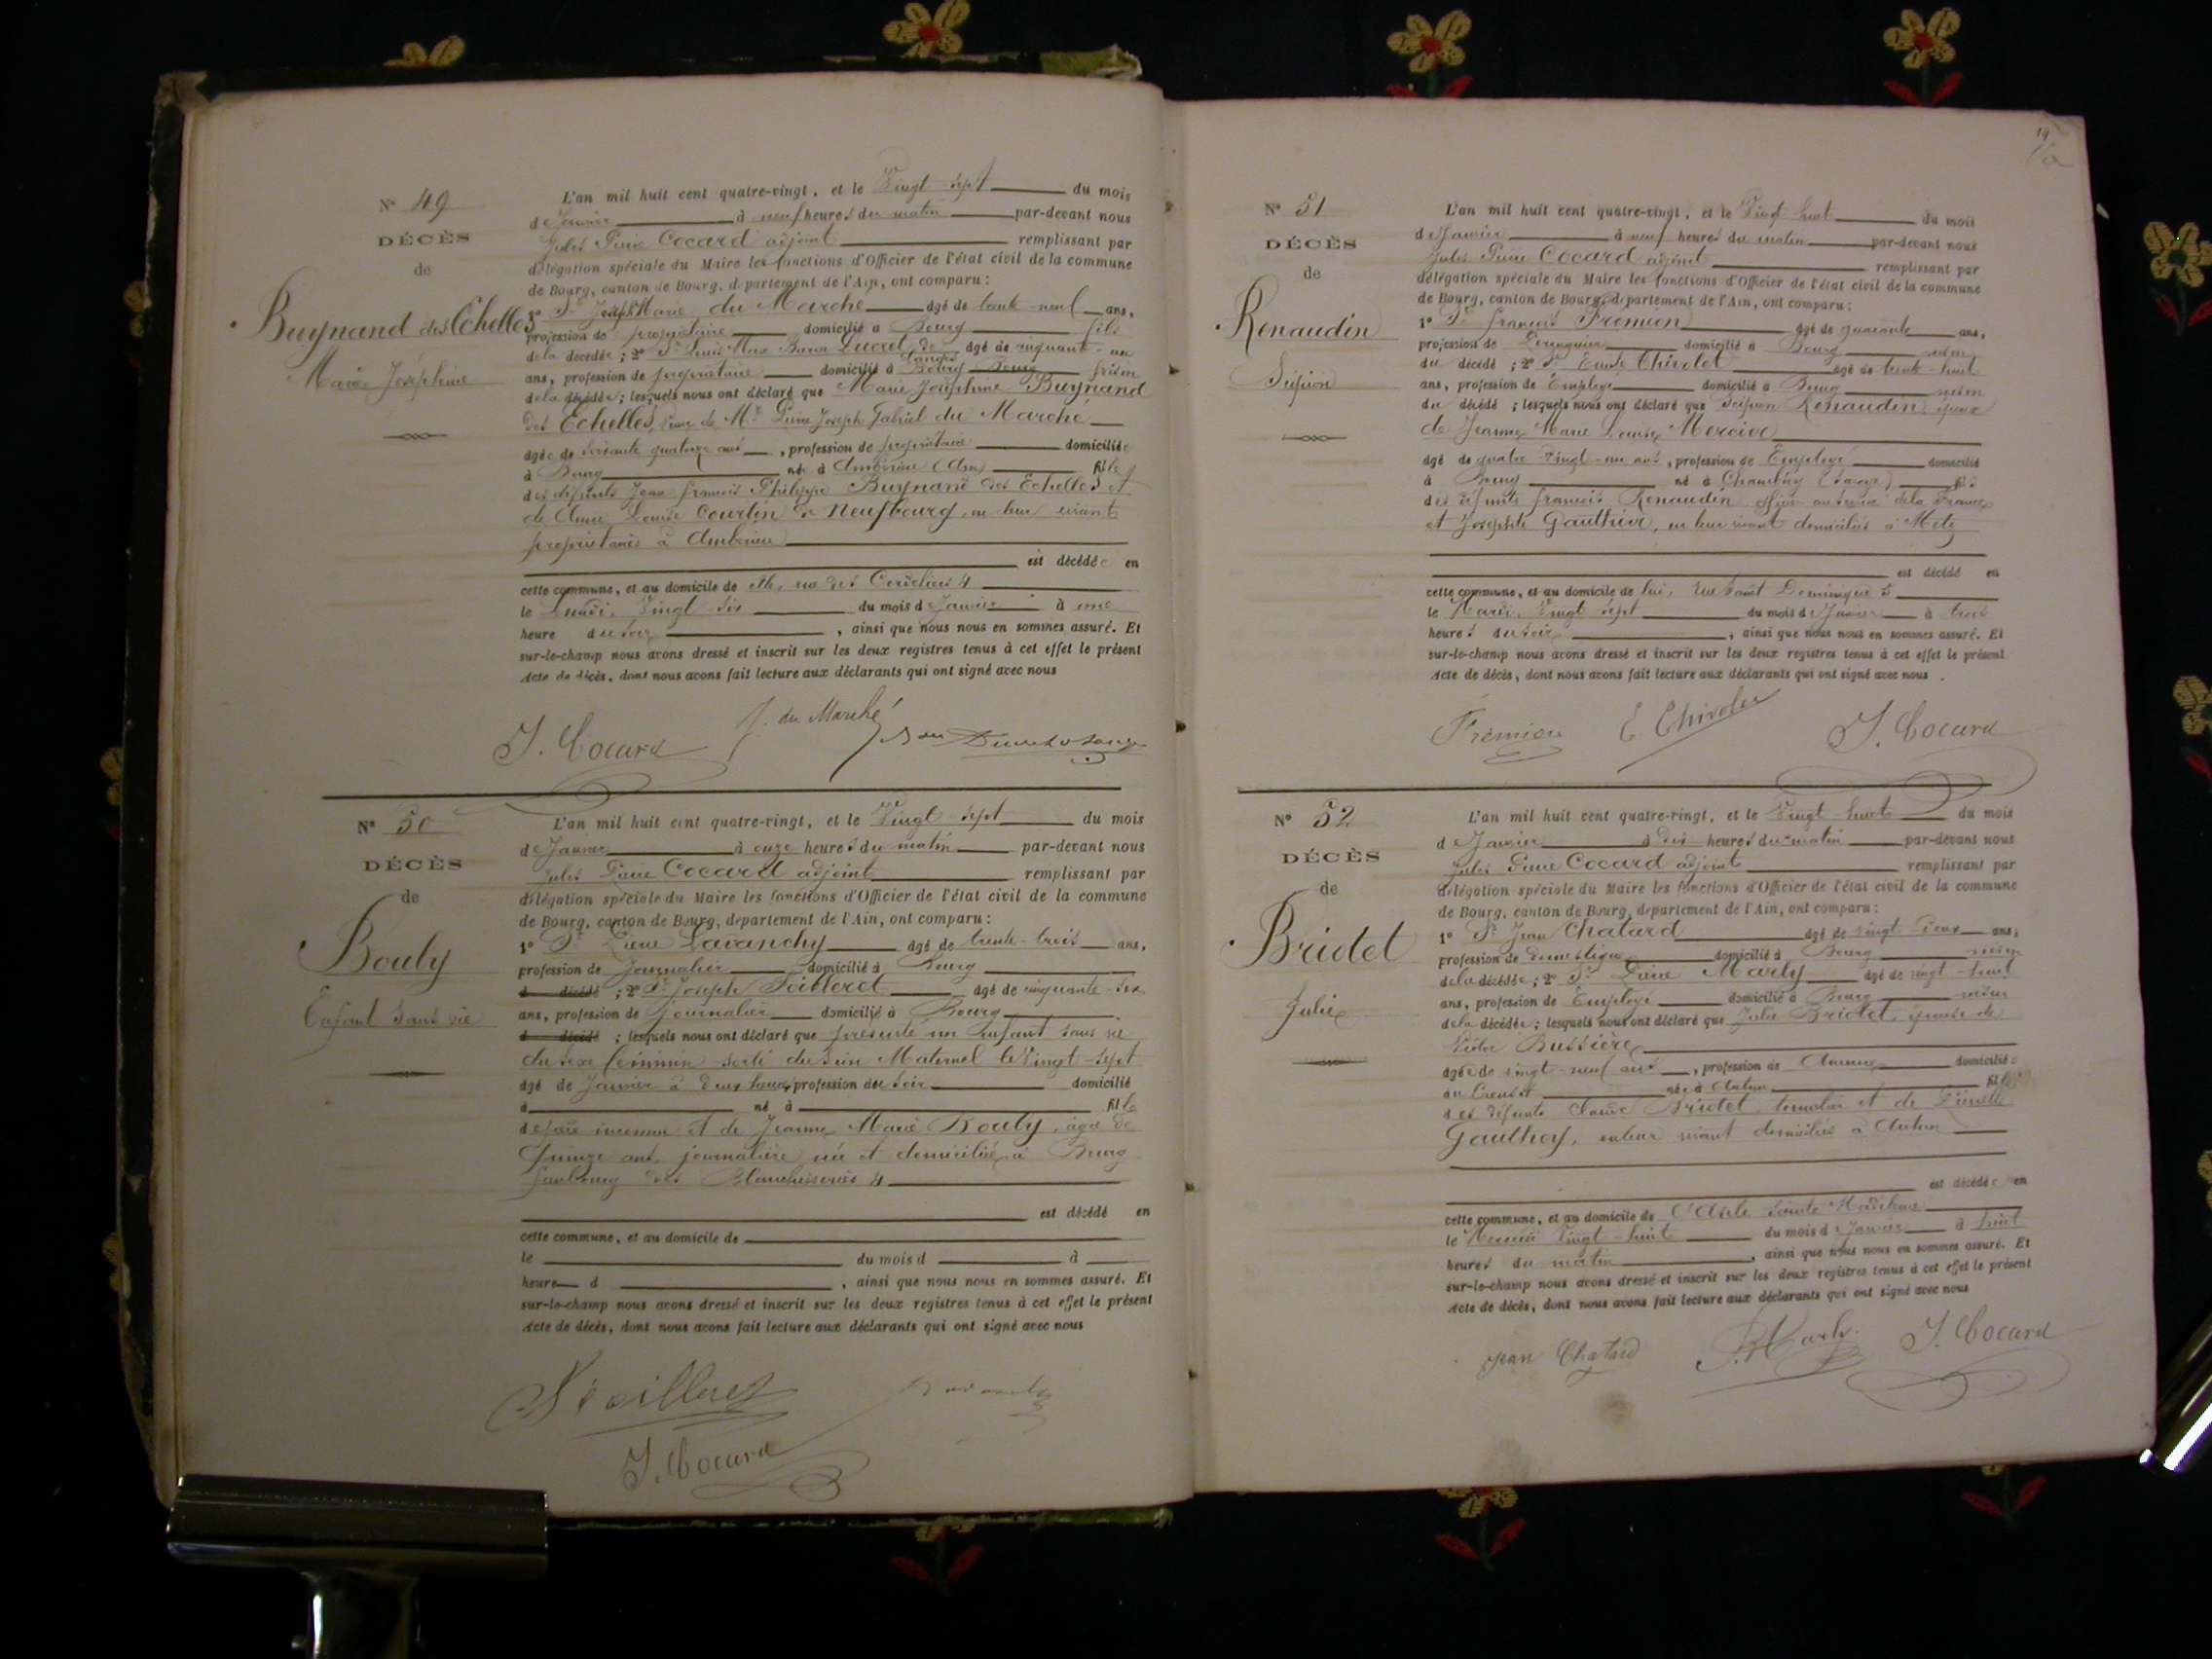 N° 49
DÉCÈS
de
Buynand des Echelles
Marie Joséphine
L'an mil huit cent quatre-vingt, et le Vingt-sept du mois
de Janvier à neuf heures du matin par-devant nous
Jules Pierre Cocard adjoint remplissant par
délégation spéciale du Maire les fonctions d'Officier de l'état civil de la commune
de Bourg, canton de Bourg, département de l'Ain, ont comparu :
1° Sr Joseph Marie du Marché âgé de trente-neuf ans,
profession de propriétaire domicilié à Bourg fils
de la décédée ; 2° Sr Louis Max Baron Ducret de âgé de cinquante-un
Langes
ans, profession de propriétaire domicilié à Bourg
de la décédée ; lesquels nous ont déclaré que Marie Joséphine Buynand
des Echelles, veuve de Mr Pierre Joseph Gabriel du Marché
âgée de soixante quatorze ans, profession de propriétaire domiciliée
à Bourg née à Ambérieu (Ain) fille
des défunts Jean François Philippe Buynand des Echelles et
de Aimée Louise Courtin de Neufbourg, en leur vivant
propriétaires à Ambérieu
est décédée en
cette commune, et au domicile de elle, rue des Cordeliers 4
le Lundi, Vingt-six du mois d Janvier à une
heure du soir, ainsi que nous nous en sommes assuré. Et
sur-le-champ nous avons dressé et inscrit sur les deux registres tenus à cet effet le présent
Acte de décès, dont nous avons fait lecture aux déclarants qui ont signé avec nous
J. Cocard J. du Marché
N° 50
DÉCÈS
de
Bouly
Enfant sans vie
L'an mil huit cent quatre-vingt, et le Vingt-sept du mois
de Janvier à onze heures du matin par-devant nous
Jules Pierre Cocard adjoint remplissant par
délégation spéciale du Maire les fonctions d'Officier de l'état civil de la commune
de Bourg, canton de Bourg, département de l'Ain, ont comparu :
1° Sr Pierre Lavanchy âgé de trente-trois ans,
profession de Journalier domicilié à Bourg
d décédé ; 2° Sr Joseph âgé de cinquante-six
ans, profession de journalier domicilié à Bourg
d décédé ; lesquels nous ont déclaré que présenté un enfant sans vie
du sexe féminin sorti du sein Maternel le Vingt-sept
âgé de Janvier à deux heures, profession du soir domicilié
à né à fille
de père inconnu et de Jeanne Marie Bouly, âgée de
ans, journalière née et domiciliée à Bourg
faubourg des Blanchisseries 4
est décédé en
cette commune, et au domicile de
le du mois d à
heure d , ainsi que nous nous en sommes assuré. Et
sur-le-champ nous avons dressé et inscrit sur les deux registres tenus à cet effet le présent
Acte de décès, dont nous avons fait lecture aux déclarants qui ont signé avec nous
J. Cocard
19
N° 51
DÉCÈS
de
Renaudin
Scipion
L'an mil huit cent quatre-vingt, et le Vingt-huit du mois
de Janvier à neuf heures du matin par-devant nous
Jules Pierre Cocard adjoint remplissant par
délégation spéciale du Maire les fonctions d'Officier de l'état civil de la commune
de Bourg, canton de Bourg, département de l'Ain, ont comparu :
1° Sr François Fremion âgé de quarante ans,
profession de Perruquier domicilié à Bourg voisin
du décédé ; 2° Sr Emile Chivolet âgé de trente-huit
ans, profession de Employé domicilié à Bourg voisin
du décédé ; lesquels nous ont déclaré que Scipion Renaudin époux
de Jeanne Marie Louise Mercier
âgé de quatre vingt-un ans, profession de Employé domicilié
à Bourg né à Chambéry (Savoie) fils
des défunts François Renaudin, au service de la France
et Josephte Gauthier, en leur vivant domiciliés à Metz
est décédé en
cette commune, et au domicile de lui, rue Saint Dominique 5
le Mardi, Vingt-sept du mois d Janvier à trois
heures du soir, ainsi que nous nous en sommes assuré. Et
sur-le-champ nous avons dressé et inscrit sur les deux registres tenus à cet effet le présent
Acte de décès, dont nous avons fait lecture aux déclarants qui ont signé avec nous.
Fremion E Chivolet J. Cocard
N° 52
DÉCÈS
de
Bridet
Julie
L'an mil huit cent quatre-vingt, et le Vingt-huit du mois
d Janvier à dix heures du matin par-devant nous
Jules Pierre Cocard adjoint remplissant par
délégation spéciale du Maire les fonctions d'Officier de l'état civil de la commune
de Bourg, canton de Bourg, département de l'Ain, ont comparu :
1° Sr Jean Chatard âgé de vingt-deux ans,
profession de Domestique domicilié à Bourg voisin
de la décédée ; 2° Sr Pierre Marly âgé de vingt-huit
ans, profession de Employé domicilié à Bourg voisin
de la décédée ; lesquels nous ont déclaré que Julie Bridet, épouse de
Victor Bussière
âgée de vingt-neuf ans, profession de Aucune domiciliée
au Creusot née à Autun fille
des défunts Bridet, et de Pierrette
Gauthey, en leur vivant domiciliés à Autun
est décédée en
cette commune, et au domicile de l'Asile Sainte Madeleine
le Mercredi Vingt-huit du mois d Janvier à huit
heures du matin, ainsi que nous nous en sommes assuré. Et
sur-le-champ nous avons dressé et inscrit sur les deux registres tenus à cet effet le présent
Acte de décès, dont nous avons fait lecture aux déclarants qui ont signé avec nous
Jean Chatard P. Marly J. Cocard